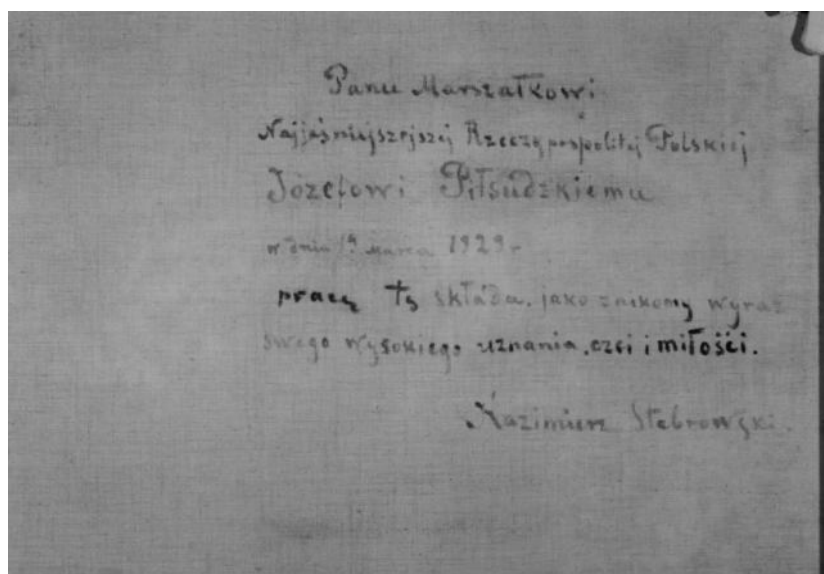 Panu Marszałkowi
Najjaśniejszejszej Rzeczypospolitej Polskiej
Józefowi Piłsudzkiemu
w dniu 19 marca 1929 r
pracę tę składa, jako znikomy wyraz
swego wysokiego uznania, czci i miłości.
Kazimierz Stabrowski.